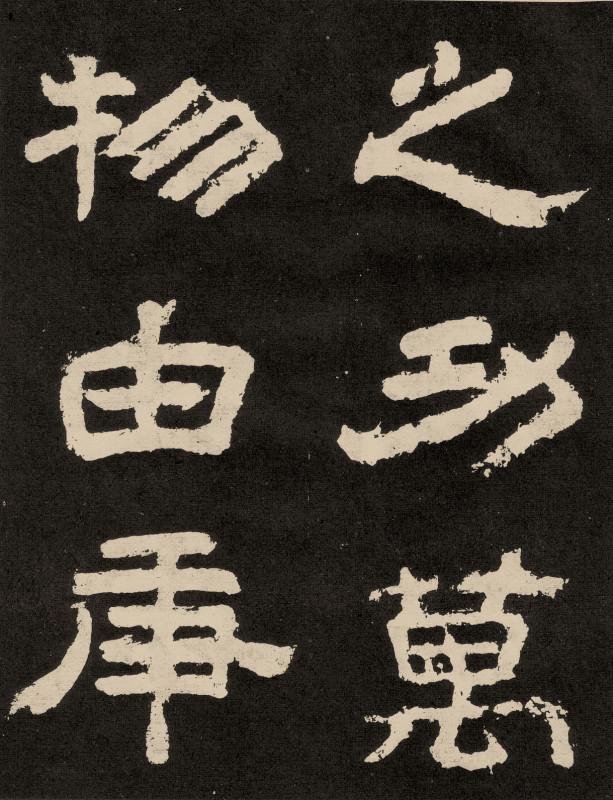 之功萬
物由庚